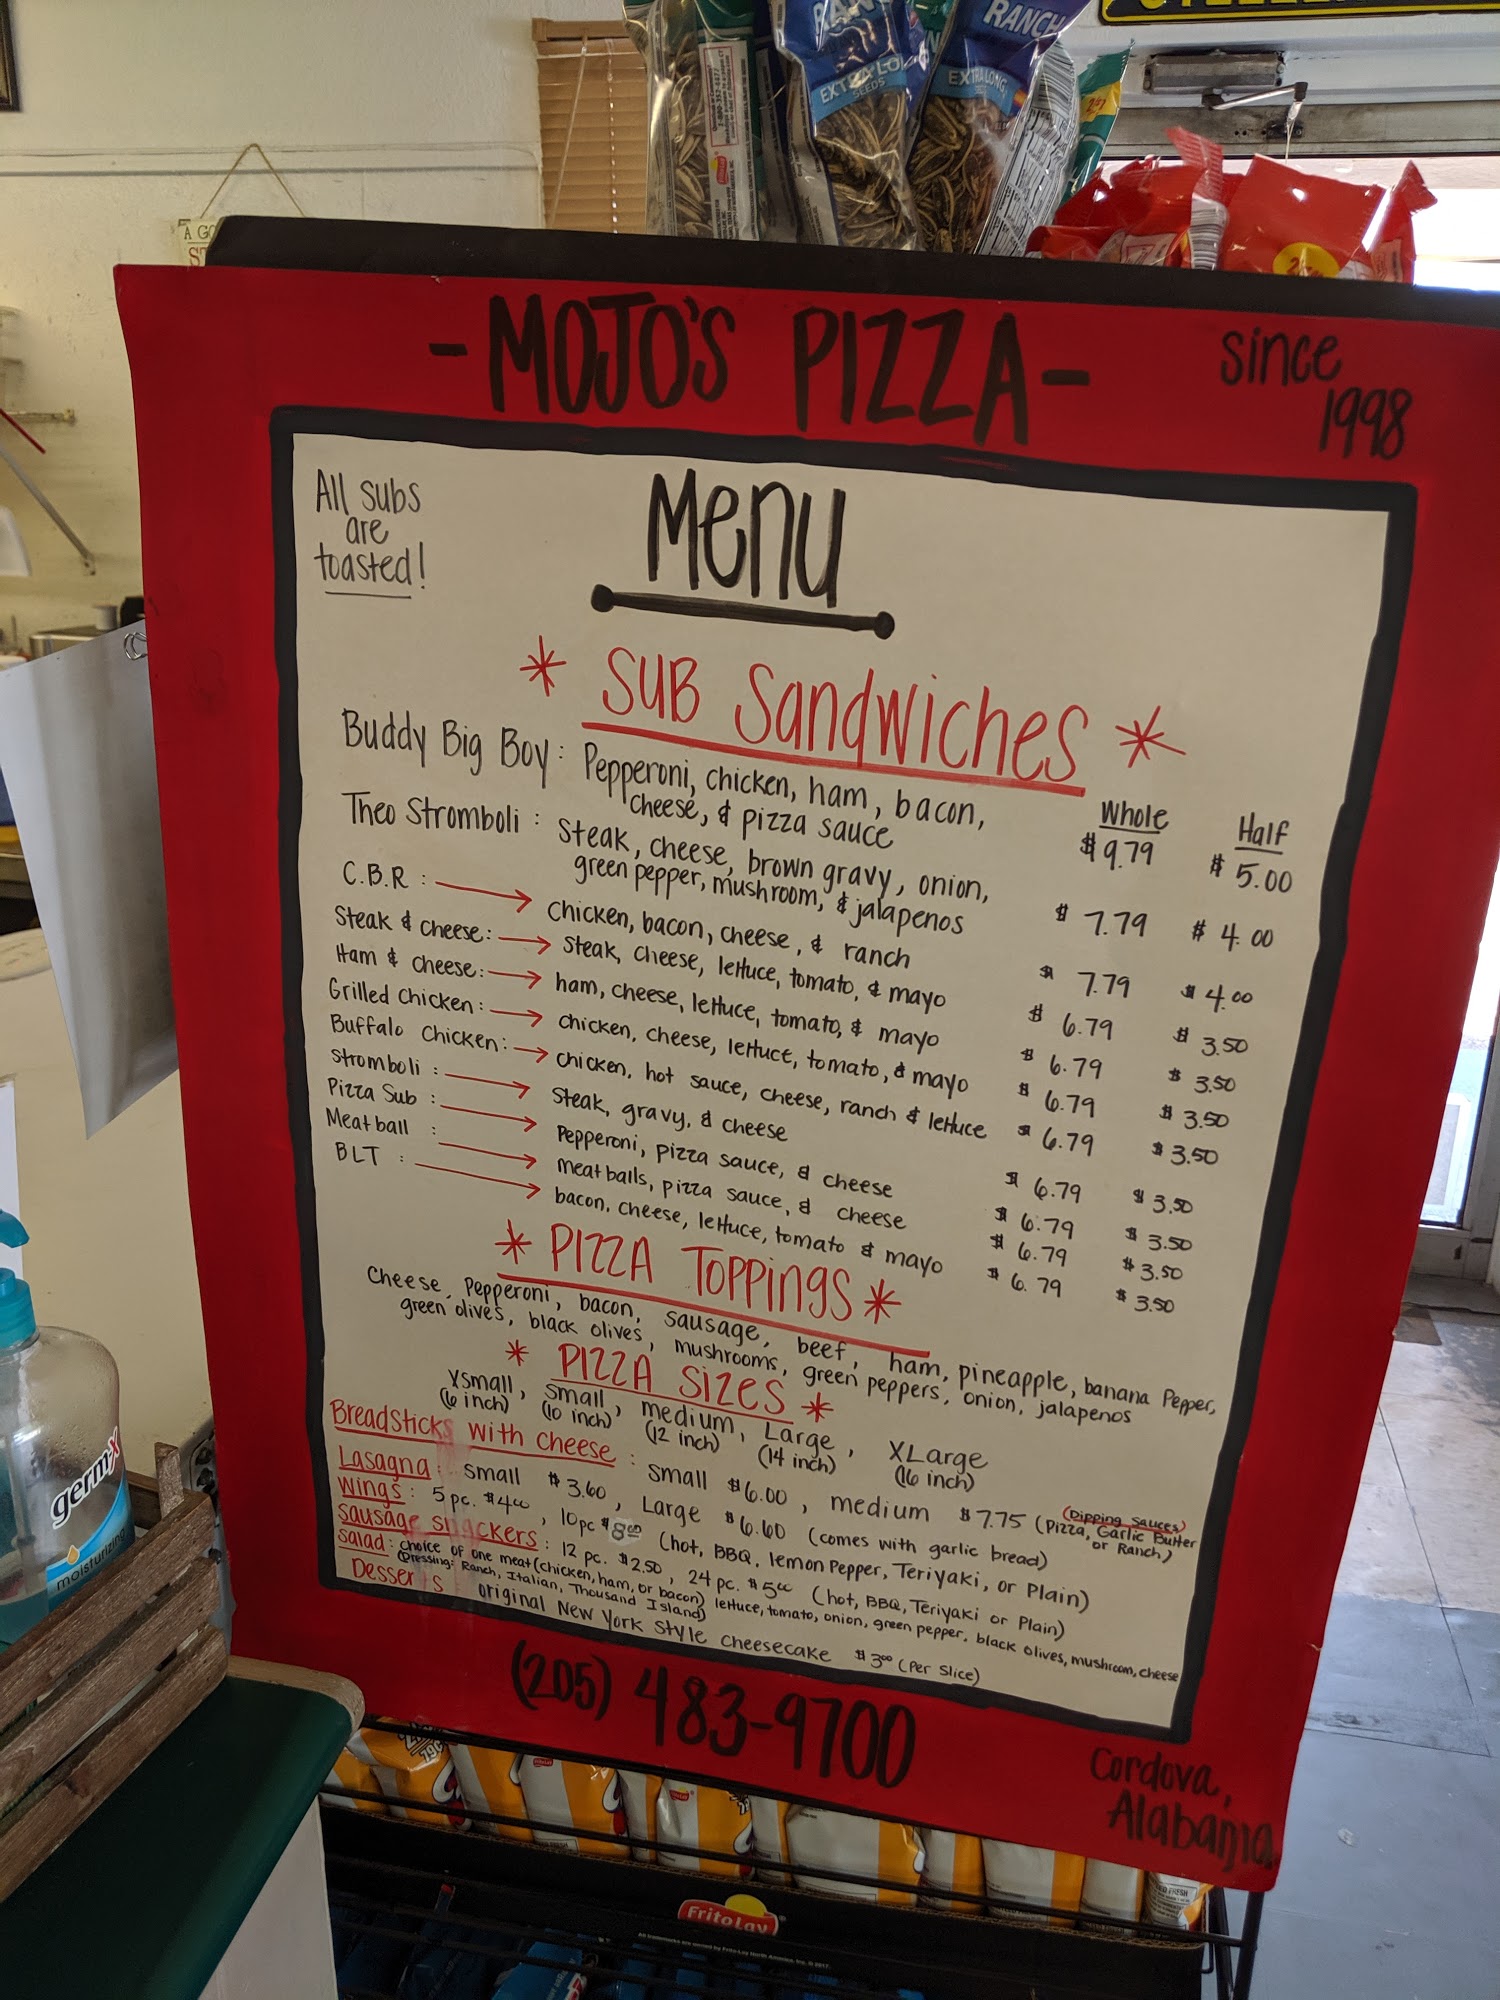 RANCH
EXTRA LONG
SEEDS
RANCH
EXTRA LONG
SEEDS
A GO
- MOJO'S PIZZA -
since
1998
All subs
are
toasted!
Menu
* SUB Sandwiches *
Whole Half
Buddy Big Boy: Pepperoni, chicken, ham, bacon,
cheese, & pizza sauce $9.79 $5.00
Theo Stromboli: Steak, cheese, brown gravy, onion,
green pepper, mushroom, & jalapenos $7.79 $4.00
C.B.R: → Chicken, bacon, cheese, & ranch $7.79 $4.00
Steak & cheese: → Steak, cheese, lettuce, tomato, & mayo $6.79 $3.50
Ham & cheese: → ham, cheese, lettuce, tomato, & mayo $6.79 $3.50
Grilled Chicken: → chicken, cheese, lettuce, tomato, & mayo $6.79 $3.50
Buffalo Chicken: → chicken, hot sauce, cheese, ranch & lettuce $6.79 $3.50
Stromboli: → Steak, gravy, & cheese $6.79 $3.50
Pizza Sub: → Pepperoni, pizza sauce, & cheese $6.79 $3.50
Meatball: → meatballs, pizza sauce, & cheese $6.79 $3.50
BLT: → bacon, cheese, lettuce, tomato & mayo $6.79 $3.50
* PIZZA TOPPINGS *
Cheese, Pepperoni, bacon, sausage, beef, ham, pineapple, banana Pepper,
green olives, black olives, mushrooms, green peppers, onion, jalapenos
* PIZZA SIZES *
XSmall, small, medium, Large, XLarge
(6 inch) (10 inch) (12 inch) (14 inch) (16 inch)
Breadsticks with cheese: small $6.00, medium $7.75 (Dipping Sauces)
(Pizza, Garlic Butter
or Ranch)
Lasagna: small $3.60, Large $6.60 (comes with garlic bread)
Wings: 5 pc. $4.00, 10pc $8.00 (hot, BBQ, lemon Pepper, Teriyaki, or Plain)
Sausage snackers: 12 pc. $2.50, 24 pc. $5.00 (hot, BBQ, Teriyaki or Plain)
Salad: choice of one meat (chicken, ham, or bacon) lettuce, tomato, onion, green pepper, black olives, mushroom, cheese
(Dressing: Ranch, Italian, Thousand Island)
Desserts original New York style cheesecake $3.00 (Per Slice)
(205) 483-9700
Cordova,
Alabama
germ-x
moisturizing
Frito Lay